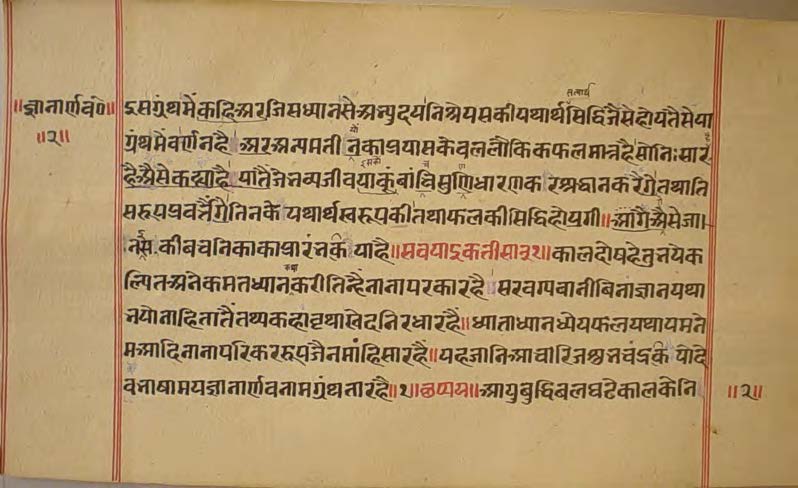 सत्यार्थ
॥ज्ञानार्णव०॥ इसग्रंथमेंकहि अर जिसध्यानसेअभ्युदयनिश्रेयसकीयथार्थसिद्धिजैसेहोयतैसेया
॥२॥ ग्रंथमेंवर्णनहै अर अन्यमतीनकाप्रयासकेवललौकिकफलमात्रहैसोनिःसार
हैअैसेकह्याहै यातैंजेभव्यजीवयाकूंबांचिसुणिधारणकरिश्रद्धानकरैंगेतथाति
सरूपप्रवर्त्तैंगेतिनकेयथार्थस्वरूपकीतथाफलकीसिद्धिहोयगी॥आगैंअैसेजा
नकीवचनिकाकाप्रारंभकियाहै॥सवयाइकतीसा॥कालदोषहेतुनयेक
ल्पितअनेकमतध्यानकरीतिन्हैनानापरकारहै सरवग्यवानीबिनांज्ञानयथा
नयोनाहितातैंतथ्यकहांवृथाखेदनिरधारहै॥ध्याताध्यानध्येयफलयथायमने
मआदिनानापरिकररूपजैनमांहिसारहै॥यहजानिआचारिजशुभचंद्रकियोदे
वभाषामयज्ञानार्णवनामग्रंथतारहै॥१॥छप्पय॥आयुबुद्धिबलघटेकालकेनि ॥२॥